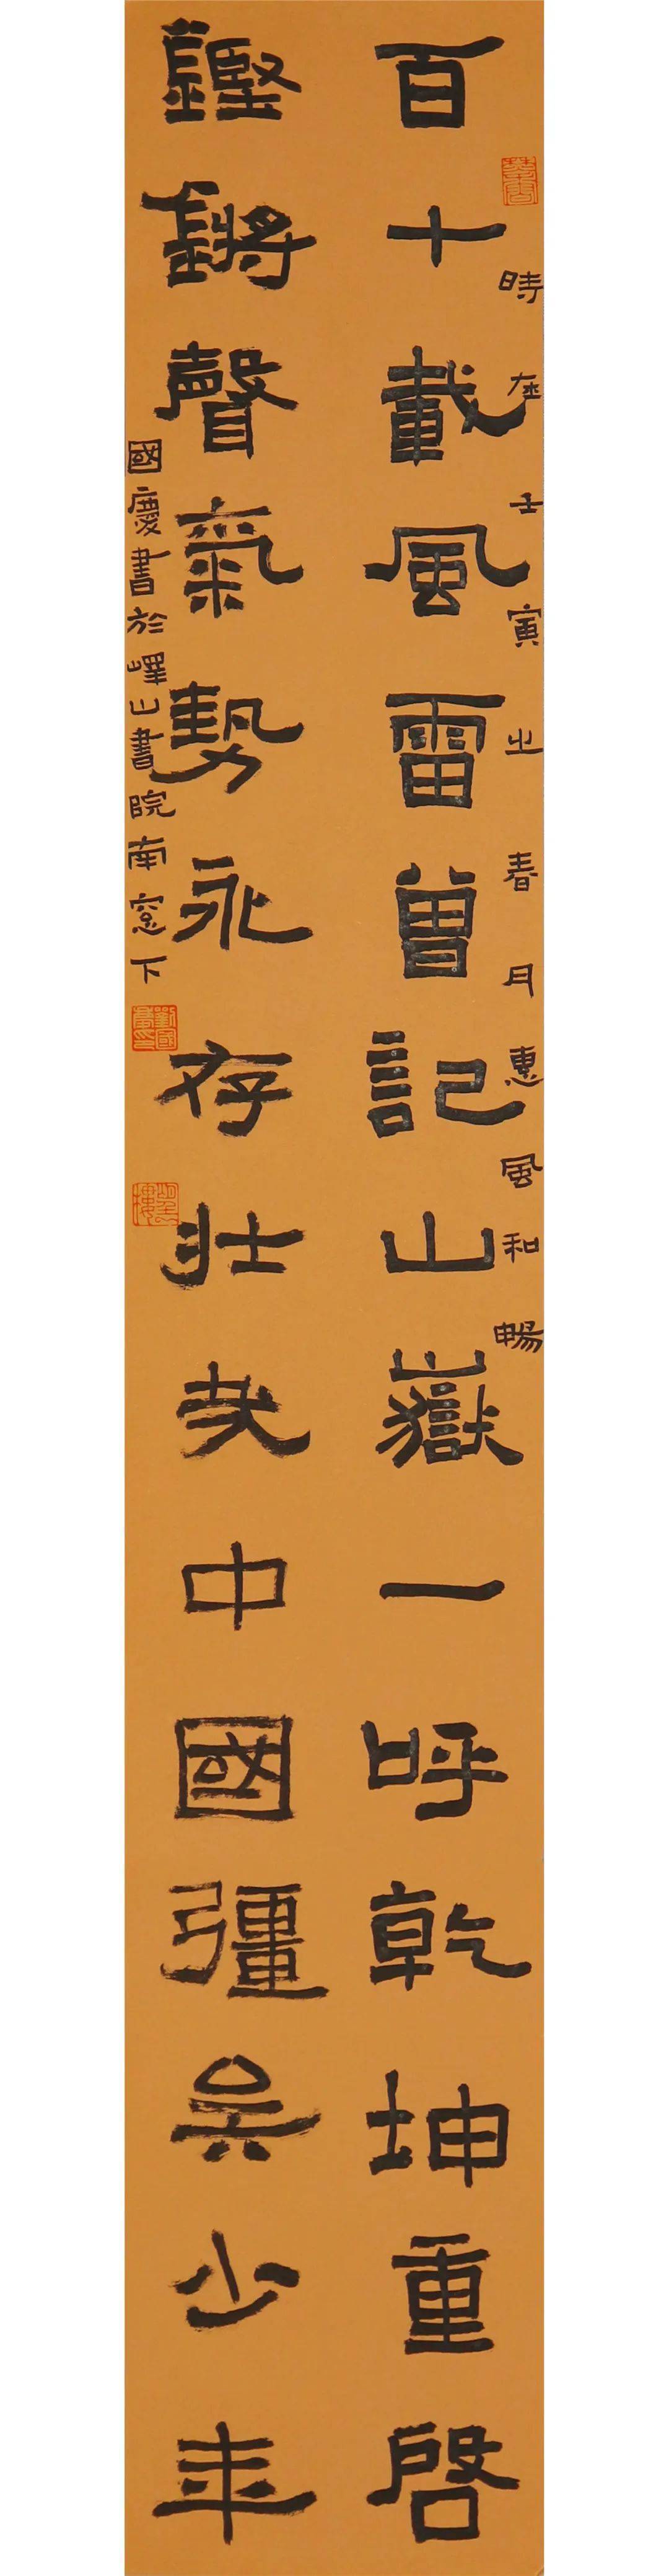 時在壬寅之春月惠風和暢
百十載風雷曾記山嶽一呼乾坤重啓
鏗鏘聲氣勢永存壯哉中國彊矣少年
國慶書於嶧山書院南窓下
劉國慶印